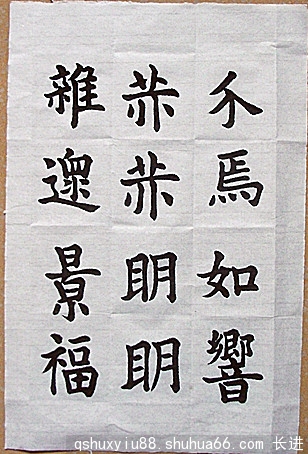 焉如響
明明
雜遝景福
qshuxyiu88.shuhua66.com 长进